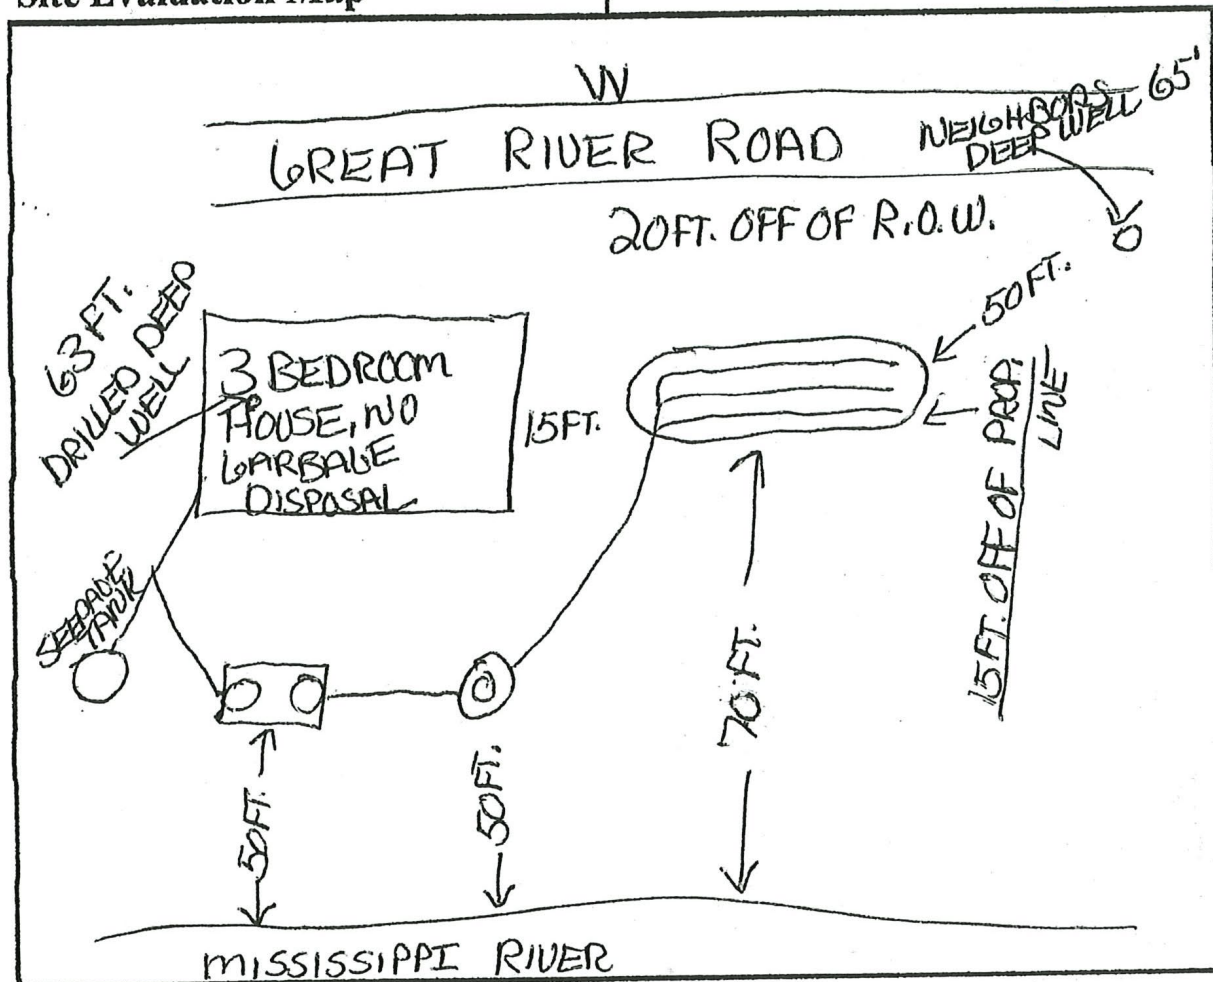 Site Evaluation Map
W
GREAT RIVER ROAD
NEIGHBORS
DEEP WELL 65'
20FT. OFF OF R.O.W.
63 FT.
DRILLED DEEP
WELL
3 BEDROOM
HOUSE, NO
GARBAGE
DISPOSAL
15FT.
50FT.
15FT. OFF OF PROP.
LINE
SEEPAGE
TANK
50FT.
50FT.
70FT.
MISSISSIPPI RIVER